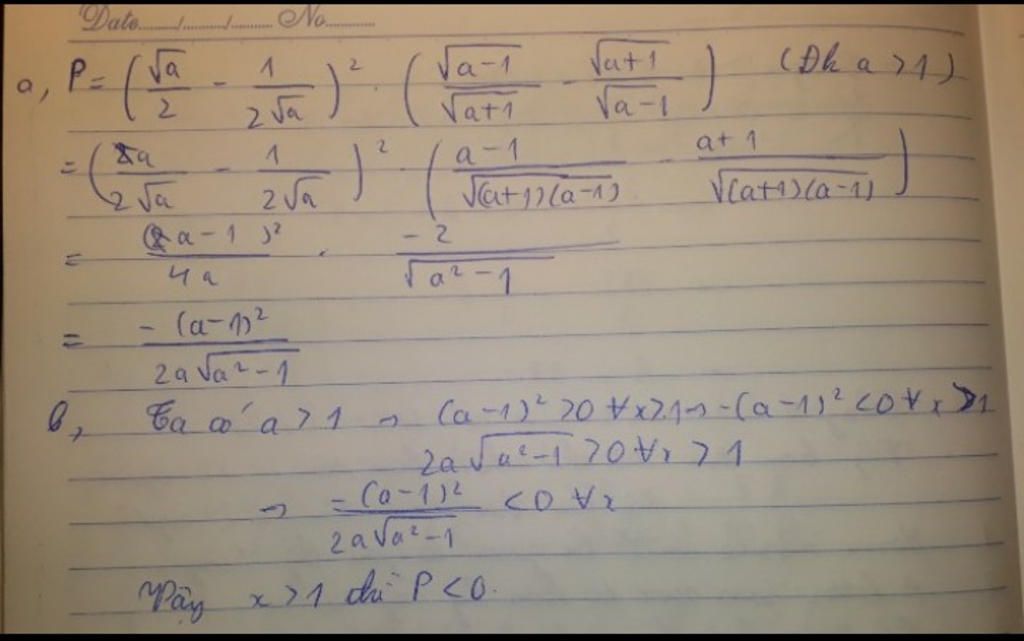 Date......../......../........ No............
a, P = (√a/2 - 1/(2√a))² · (√(a-1)/√(a+1) - √(a+1)/√(a-1)) (Đk a > 1)
= (a/(2√a) - 1/(2√a))² · ((a-1)/√((a+1)(a-1)) - (a+1)/√((a+1)(a-1)))
= (a-1)²/4a · -2/√(a²-1)
= -(a-1)²/(2a√(a²-1))
b, Ta có a > 1 → (a-1)² > 0 ∀x > 1 → -(a-1)² < 0 ∀x > 1
2a√(a²-1) > 0 ∀x > 1
→ -(a-1)²/(2a√(a²-1)) < 0 ∀x
Vậy x > 1 thì P < 0.